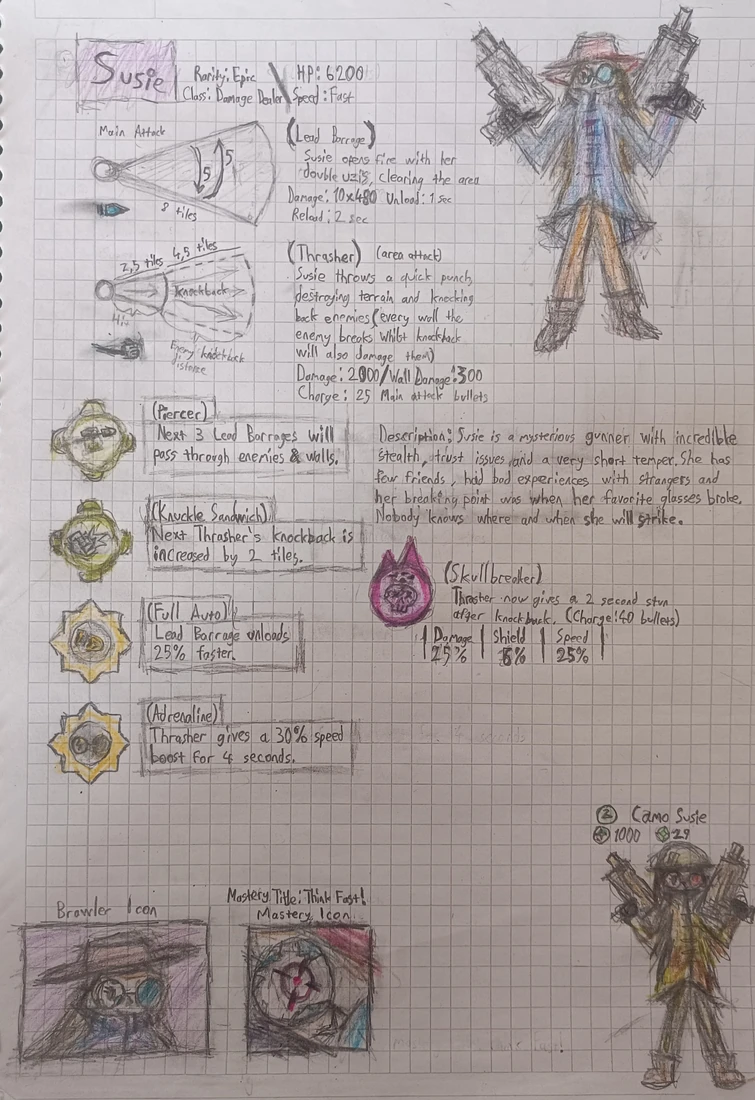 Susie
Rarity: Epic
Class: Damage Dealer
HP: 6200
Speed: Fast
Main Attack
5
5
8 tiles
(Lead Barrage)
Susie opens fire with her
double uzis, clearing the area
Damage: 10x480 Unload: 1 sec
Reload: 2 sec
2,5 tiles 4,5 tiles
knockback
Hit
Enemy knockback
distance
(Thrasher) (area attack)
Susie throws a quick punch,
destroying terrain and knocking
back enemies (every wall the
enemy breaks whilst knockback
will also damage them)
Damage: 2000/Wall Damage: 300
Charge: 25 Main attack bullets
(Piercer)
Next 3 Lead Barrages will
pass through enemies & walls.
(Knuckle Sandwich)
Next Thrasher's knockback is
increased by 2 tiles.
(Full Auto)
Lead Barrage unloads
25% faster.
(Adrenaline)
Thrasher gives a 30% speed
boost for 4 seconds.
Description: Susie is a mysterious gunner with incredible
stealth, trust issues and a very short temper. She has
few friends, had bad experiences with strangers and
her breaking point was when her favorite glasses broke.
Nobody knows where and when she will strike.
(Skullbreaker)
Thraster now gives a 2 second stun
after knockback. (Charge: 40 bullets)
Damage Shield Speed
25% 5% 25%
2 Camo Susie
1000 29
Brawler Icon
Mastery Title: Think Fast!
Mastery Icon